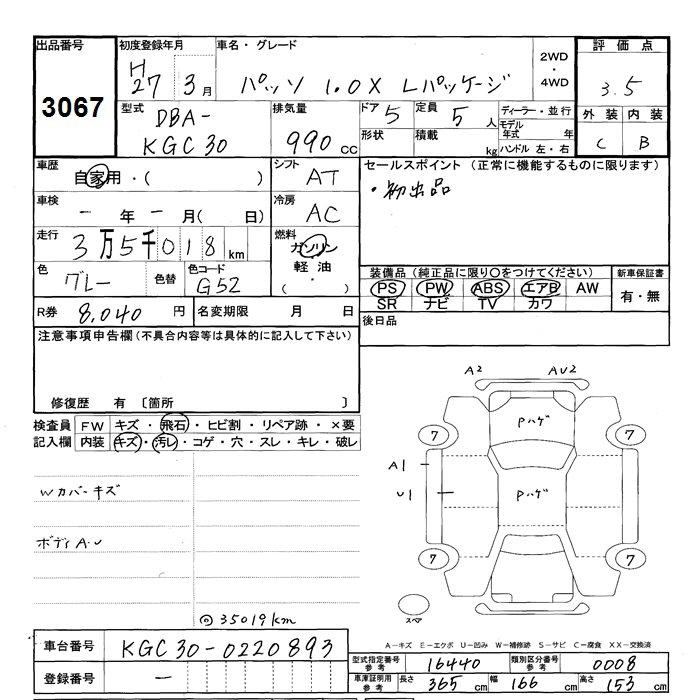 出品番号 初度登録年月 車名・グレード 評価点
3067
H27 3月 パッソ 1.0X Lパッケージ 2WD 4WD 3.5
型式 DBA-KGC30 排気量 990cc ドア 5 定員 5人 ディーラー・並行 外装 内装
形状 積載 kg モデル年式 年 C B
ハンドル 左・右
車歴 自家用・( ) シフト AT セールスポイント (正常に機能するものに限ります)
・初出品
車検 ー年ー月( 日) 冷房 AC
走行 3万5千018km 燃料 ガソリン
軽油
( ・ )
色 グレー 色替 色コード G52 装備品 (純正品に限り〇をつけてください) 新車保証書
PS PW ABS エアB AW 有・無
SR ナビ TV カワ
R券 8,040円 名変期限 月 日 後日品
注意事項申告欄 (不具合内容等は具体的に記入して下さい)
修復歴 有 〔箇所 〕
検査員 FW キズ・飛石・ヒビ割・リペア跡・×要
記入欄 内装 キズ・汚レ・コゲ・穴・スレ・キレ・破レ
A2 AU2
Pハゲ
7 7
A1
U1 Pハゲ
7 7
スペア
Wカバーキズ
ボディA.U
◎35019km
A-キズ E-エクボ U-凹み W-補修跡 S-サビ C-腐食 XX-交換済
車台番号 KGC30-0220893
型式指定番号 参考 16440 類別区分番号 参考 0008
登録番号 ー
車庫証明用 参考 長さ 365cm 幅 166cm 高さ 153cm